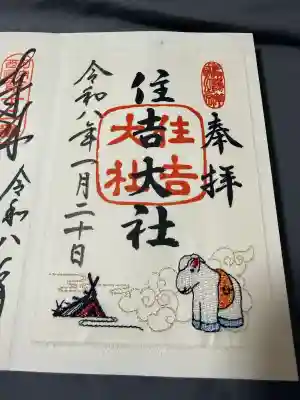 奉拝
住吉大社
住吉大社
令和八年一月二十日
令和八